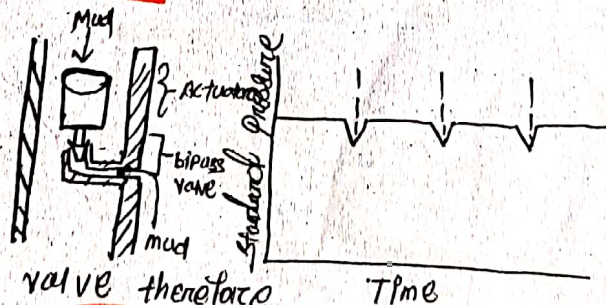 Mud
Actuator
bipass
valve
mud
Standard pressure
Time
valve therefore